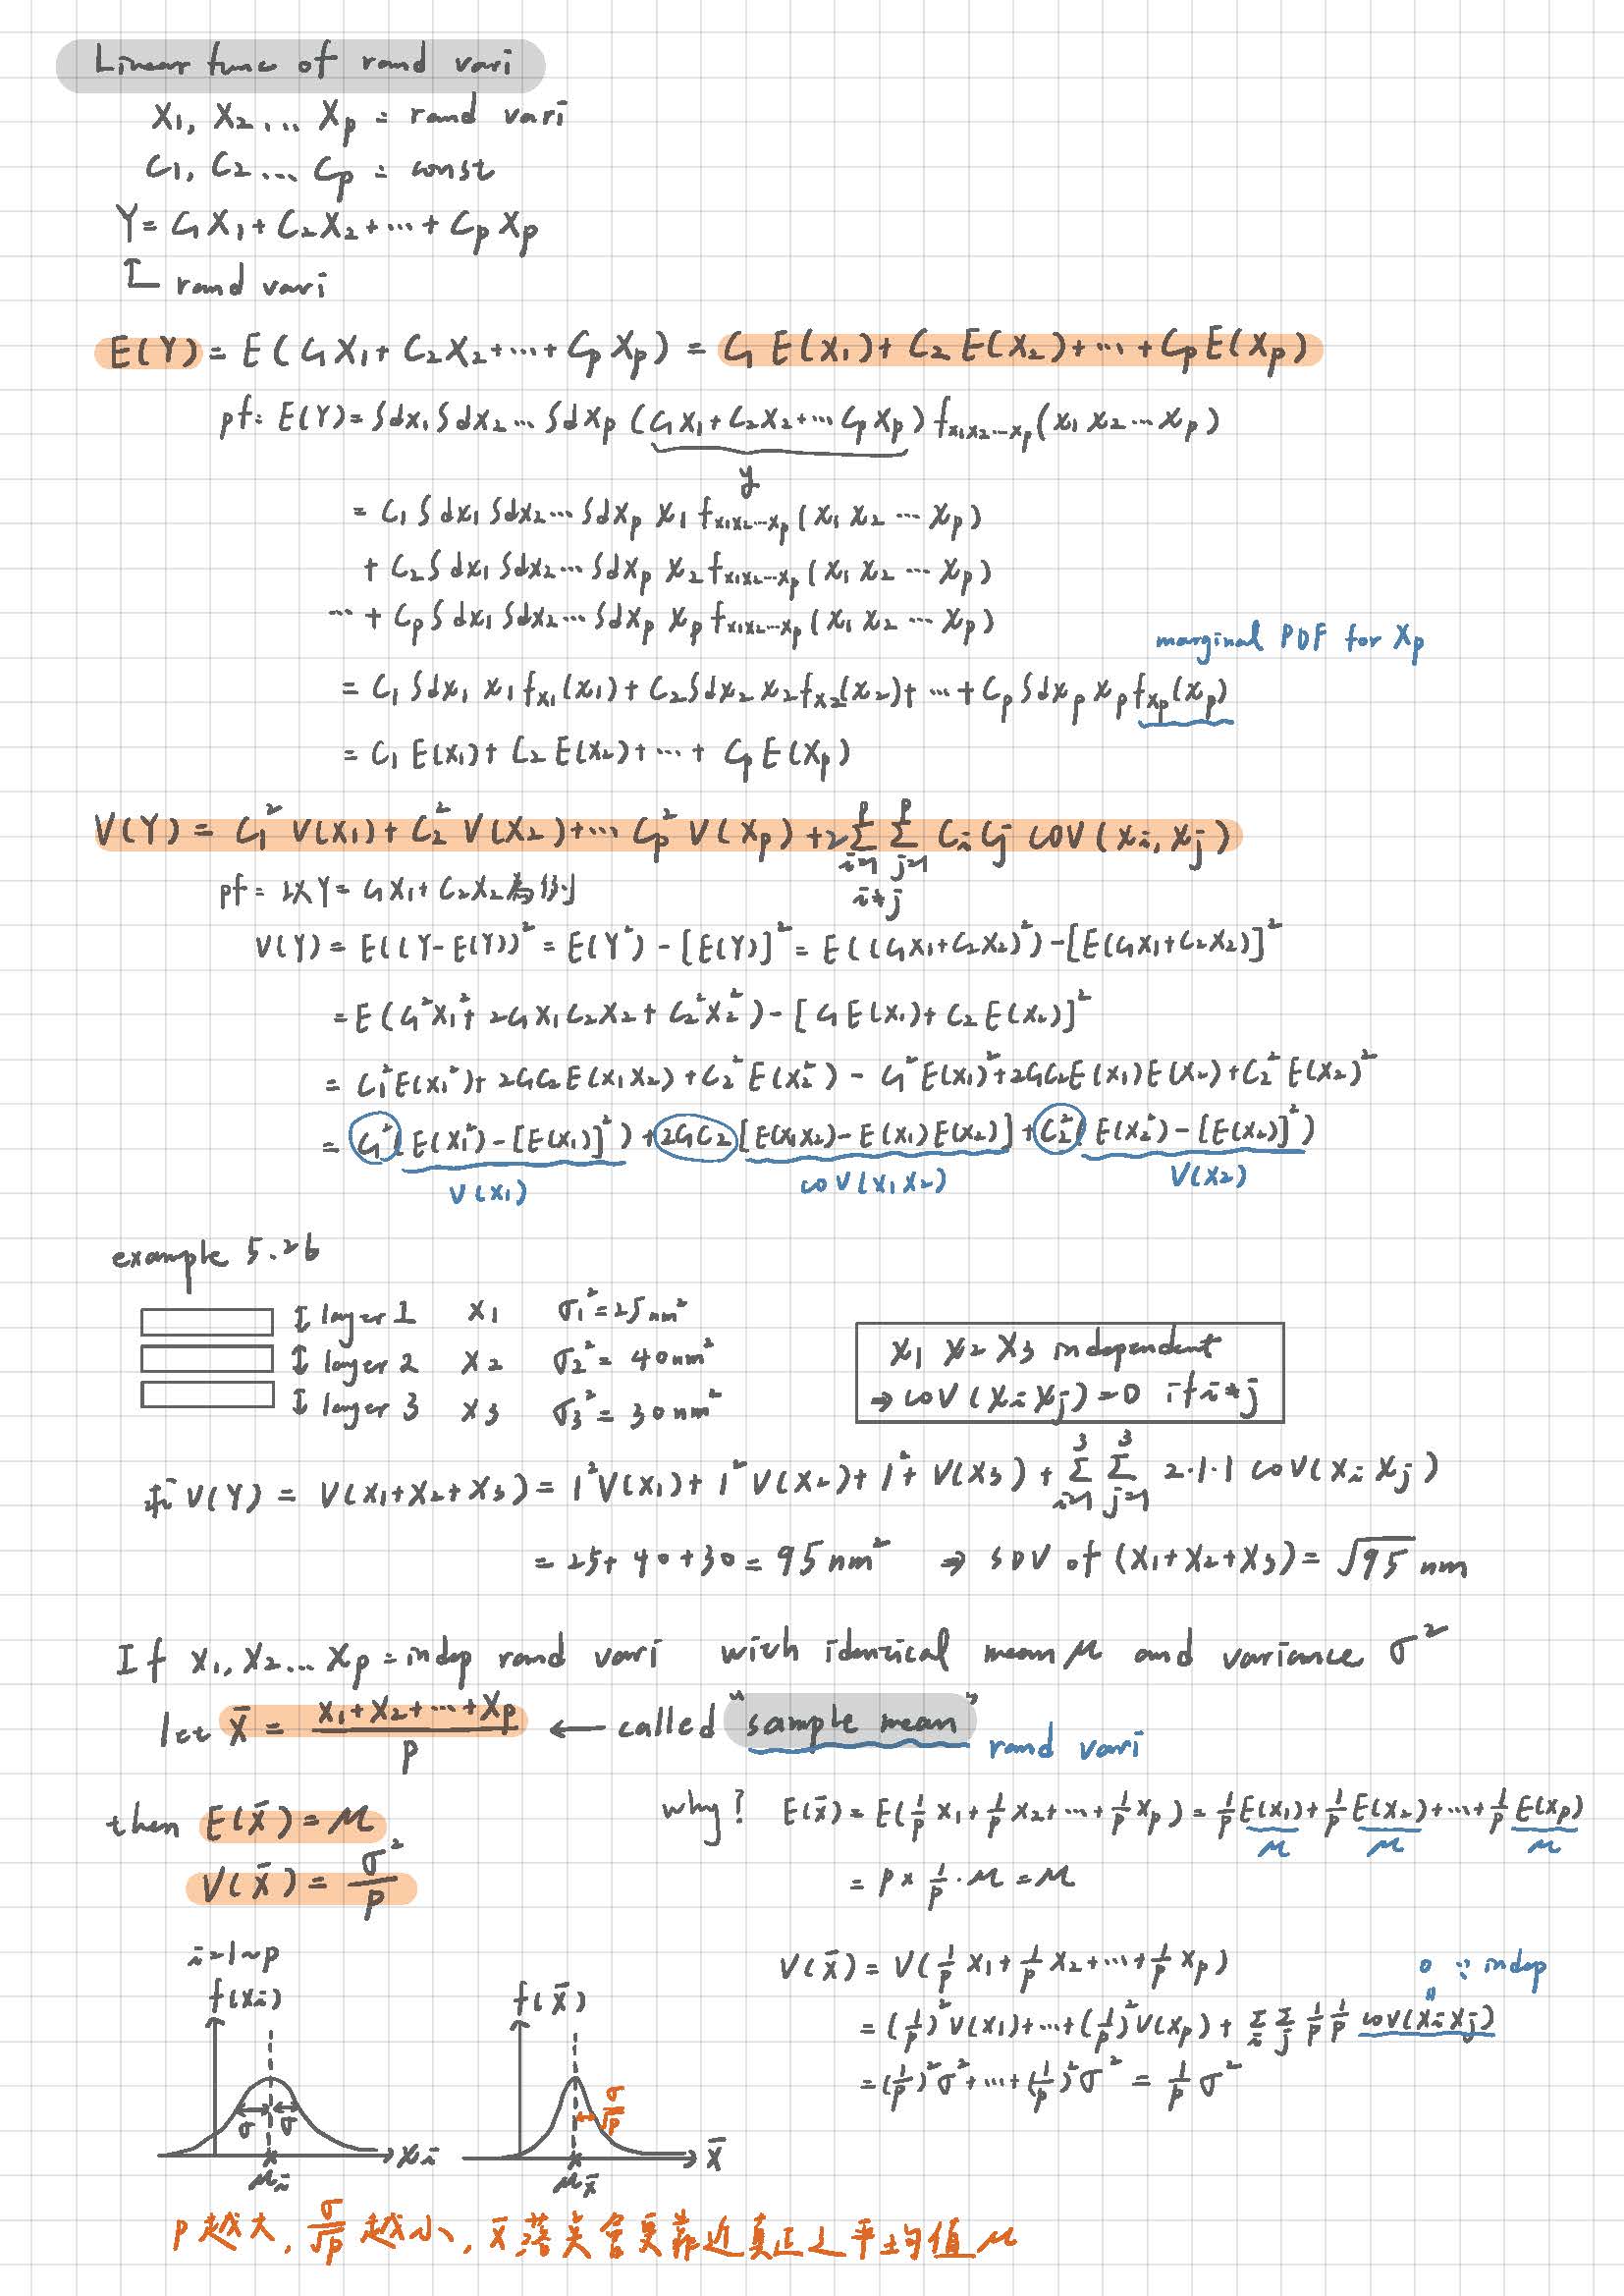 Linear func of rand vari
X₁, X₂ … Xp = rand vari
C₁, C₂ … Cp = const
Y = C₁X₁ + C₂X₂ + … + CpXp
rand vari
E(Y) = E(C₁X₁ + C₂X₂ + … + CpXp) = C₁E(X₁) + C₂E(X₂) + … + CpE(Xp)
pf: E(Y) = ∫dx₁∫dx₂ … ∫dxp (C₁X₁ + C₂X₂ + … CpXp) f_{x₁x₂…xp}(x₁ x₂ … xp)
y
= C₁∫dx₁∫dx₂ … ∫dxp x₁ f_{x₁x₂…xp}(x₁ x₂ … xp)
+ C₂∫dx₁∫dx₂ … ∫dxp x₂ f_{x₁x₂…xp}(x₁ x₂ … xp)
… + Cp∫dx₁∫dx₂ … ∫dxp xp f_{x₁x₂…xp}(x₁ x₂ … xp)
marginal PDF for Xp
= C₁∫dx₁ x₁ f_{x₁}(x₁) + C₂∫dx₂ x₂ f_{x₂}(x₂) + … + Cp∫dxp xp f_{xp}(xp)
= C₁E(X₁) + C₂E(X₂) + … + CpE(Xp)
V(Y) = C₁² V(X₁) + C₂² V(X₂) + … Cp² V(Xp) + 2 Σ_{i=1}^{p} Σ_{j=1}^{p} CiCj COV(Xi, Xj)
i≠j
pf: 以 Y = C₁X₁ + C₂X₂ 為例
V(Y) = E((Y-E(Y))² = E(Y²) - [E(Y)]² = E((C₁X₁+C₂X₂)²) - [E(C₁X₁+C₂X₂)]²
= E(C₁²X₁² + 2C₁X₁C₂X₂ + C₂²X₂²) - [C₁E(X₁) + C₂E(X₂)]²
= C₁²E(X₁²) + 2C₁C₂E(X₁X₂) + C₂²E(X₂²) - C₁²E(X₁)² + 2C₁C₂E(X₁)E(X₂) + C₂²E(X₂)²
= C₁²(E(X₁²) - [E(X₁)]²) + 2C₁C₂[E(X₁X₂) - E(X₁)E(X₂)] + C₂²(E(X₂²) - [E(X₂)]²)
V(X₁) COV(X₁X₂) V(X₂)
example 5.26
layer 1 X₁ σ₁² = 25nm²
layer 2 X₂ σ₂² = 40nm²
layer 3 X₃ σ₃² = 30nm²
X₁ X₂ X₃ independent
⇒ COV(XiXj) = 0 if i≠j
求 V(Y) = V(X₁+X₂+X₃) = 1²V(X₁) + 1²V(X₂) + 1²+ V(X₃) + Σ_{i=1}^{3} Σ_{j=1}^{3} 2·1·1 COV(XiXj)
= 25 + 40 + 30 = 95nm² ⇒ SDV of (X₁+X₂+X₃) = √95 nm
If X₁, X₂ … Xp = indep rand vari with identical mean μ and variance σ²
let X̄ = (X₁+X₂+…+Xp)/p ← called "sample mean" rand vari
then E(X̄) = μ
V(X̄) = σ²/p
why? E(X̄) = E(1/p X₁ + 1/p X₂ + … + 1/p Xp) = 1/p E(X₁) + 1/p E(X₂) + … + 1/p E(Xp)
μ μ μ
= p × 1/p · μ = μ
V(X̄) = V(1/p X₁ + 1/p X₂ + … + 1/p Xp)
0 ∵ indep
= (1/p)²V(X₁) + … + (1/p)²V(Xp) + Σi Σj 1/p 1/p COV(XiXj)
= (1/p)²σ² + … + (1/p)²σ² = 1/p σ²
i=1~p
f(Xi)
σ σ
Xi
μi
f(X̄)
σ/√p
X̄
μx̄
p越大, σ/√p 越小, X̄ 落點會更靠近真正之平均值 μ